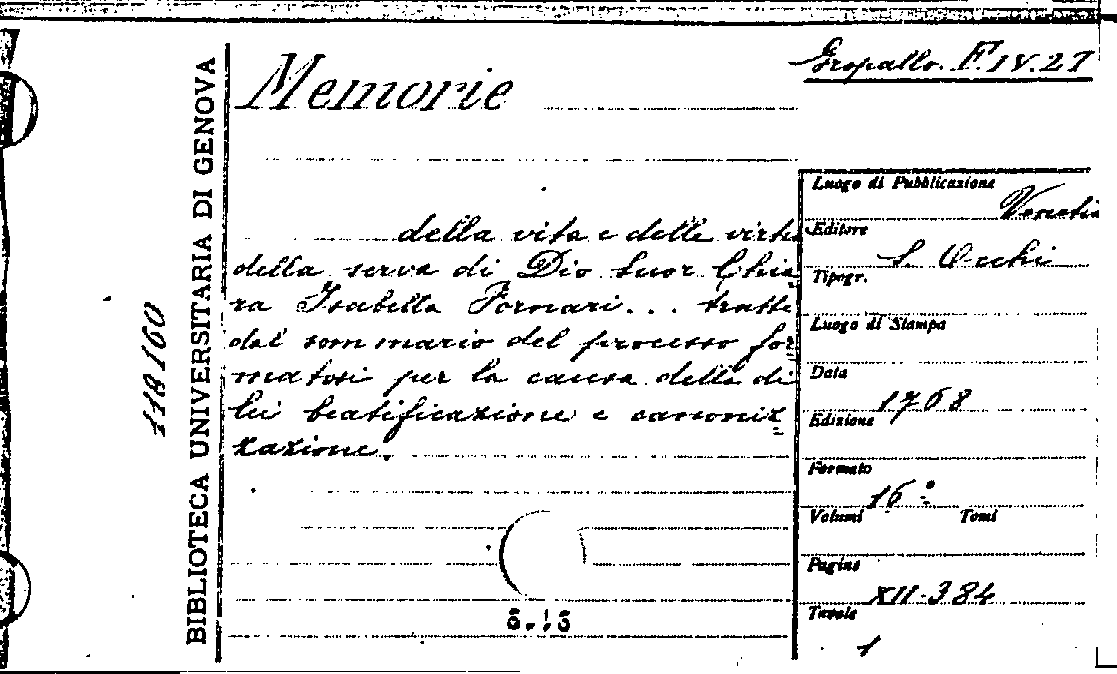 Gropallo. F.IV.27
Memorie
della vita e delle virtù
della serva di Dio Suor Chia
ra Isabella Fornari... tratte
dal sommario del processo for=
matosi per la causa della di
lei beatificazione e canoniz=
zazione.
BIBLIOTECA UNIVERSITARIA DI GENOVA
118160
Luogo di Pubblicazione
Venezia
Editore
S. Occhi
Tipogr.
Luogo di Stampa
Data
1768
Edizione
Formato
16°
Volumi Tomi
Pagine
XII-384
Tavole
1